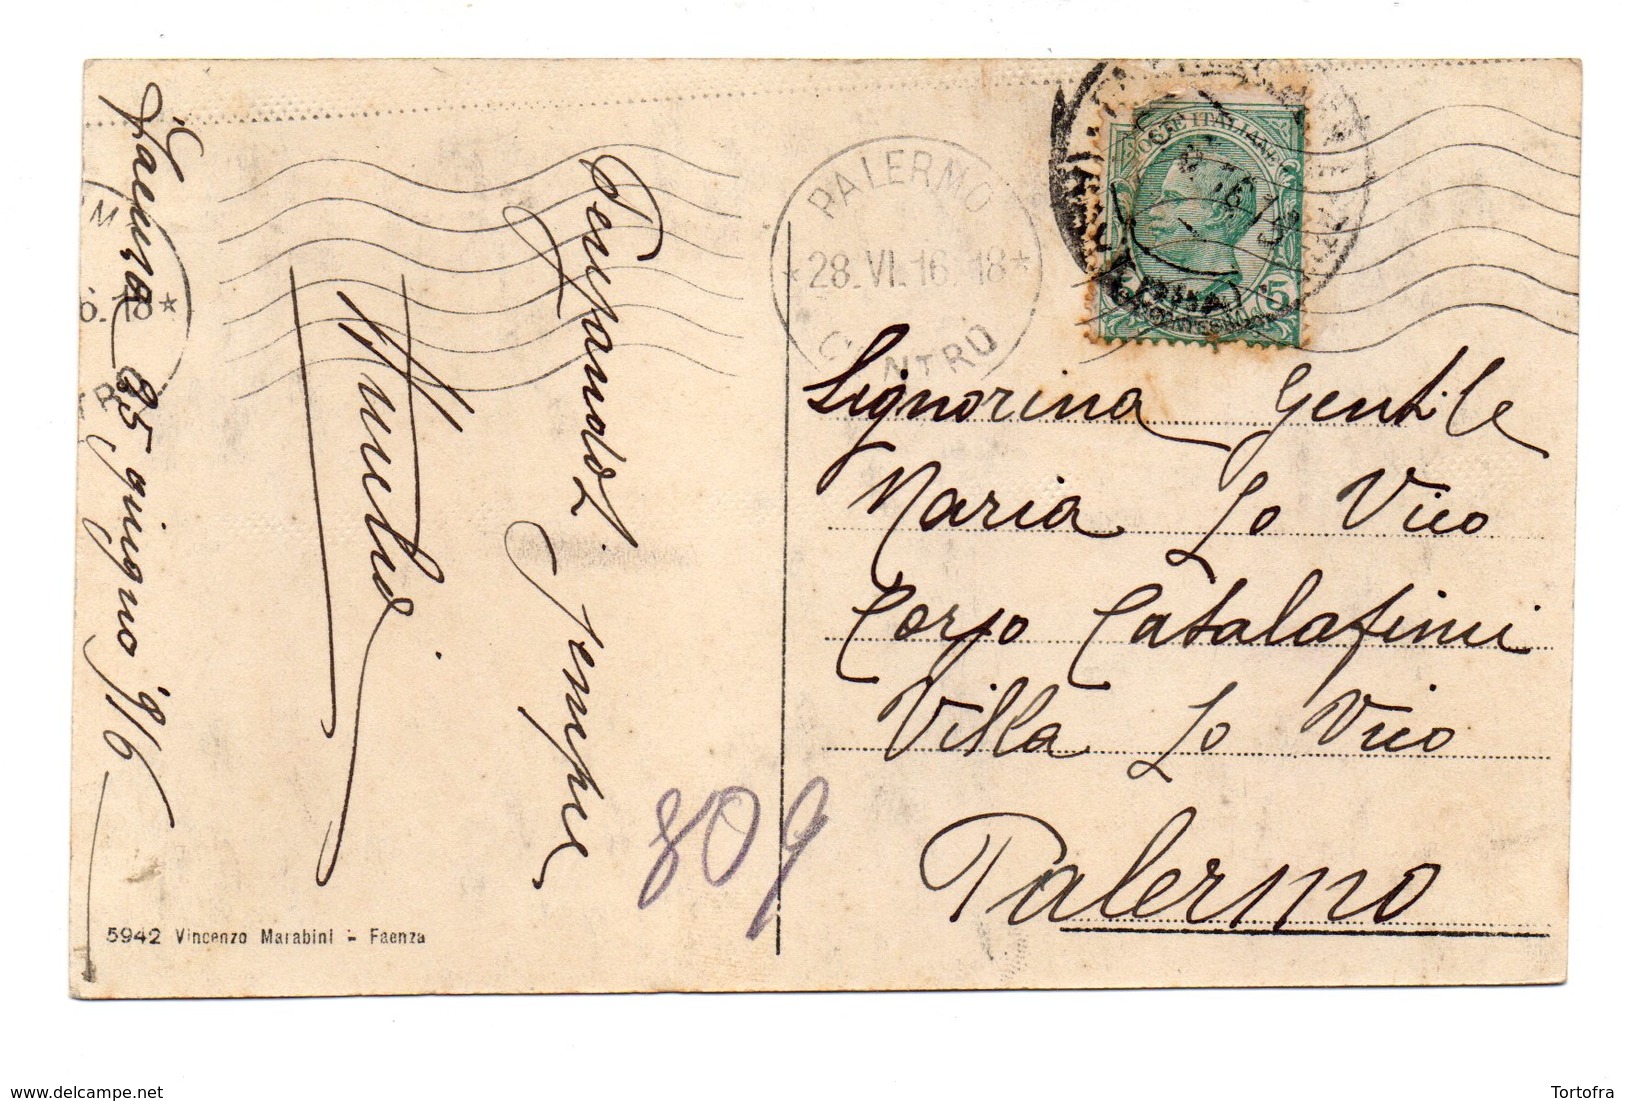 Faenza 25 giugno 916
Pensandoti sempre
5942 Vincenzo Marabini - Faenza
809
PALERMO
*28.VI.16.18*
CENTRO
POSTE ITALIANE
5
Signorina Gentile
Maria Lo Vico
Corso Catalafimi
Villa Lo Vico
Palermo
delcampe.net
Tortofra